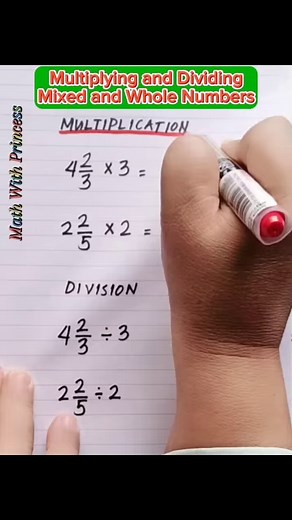 Multiplying and Dividing
Mixed and Whole Numbers
Math With Princess
MULTIPLICATION
4 2/3 × 3 =
2 2/5 × 2 =
DIVISION
4 2/3 ÷ 3
2 2/5 ÷ 2